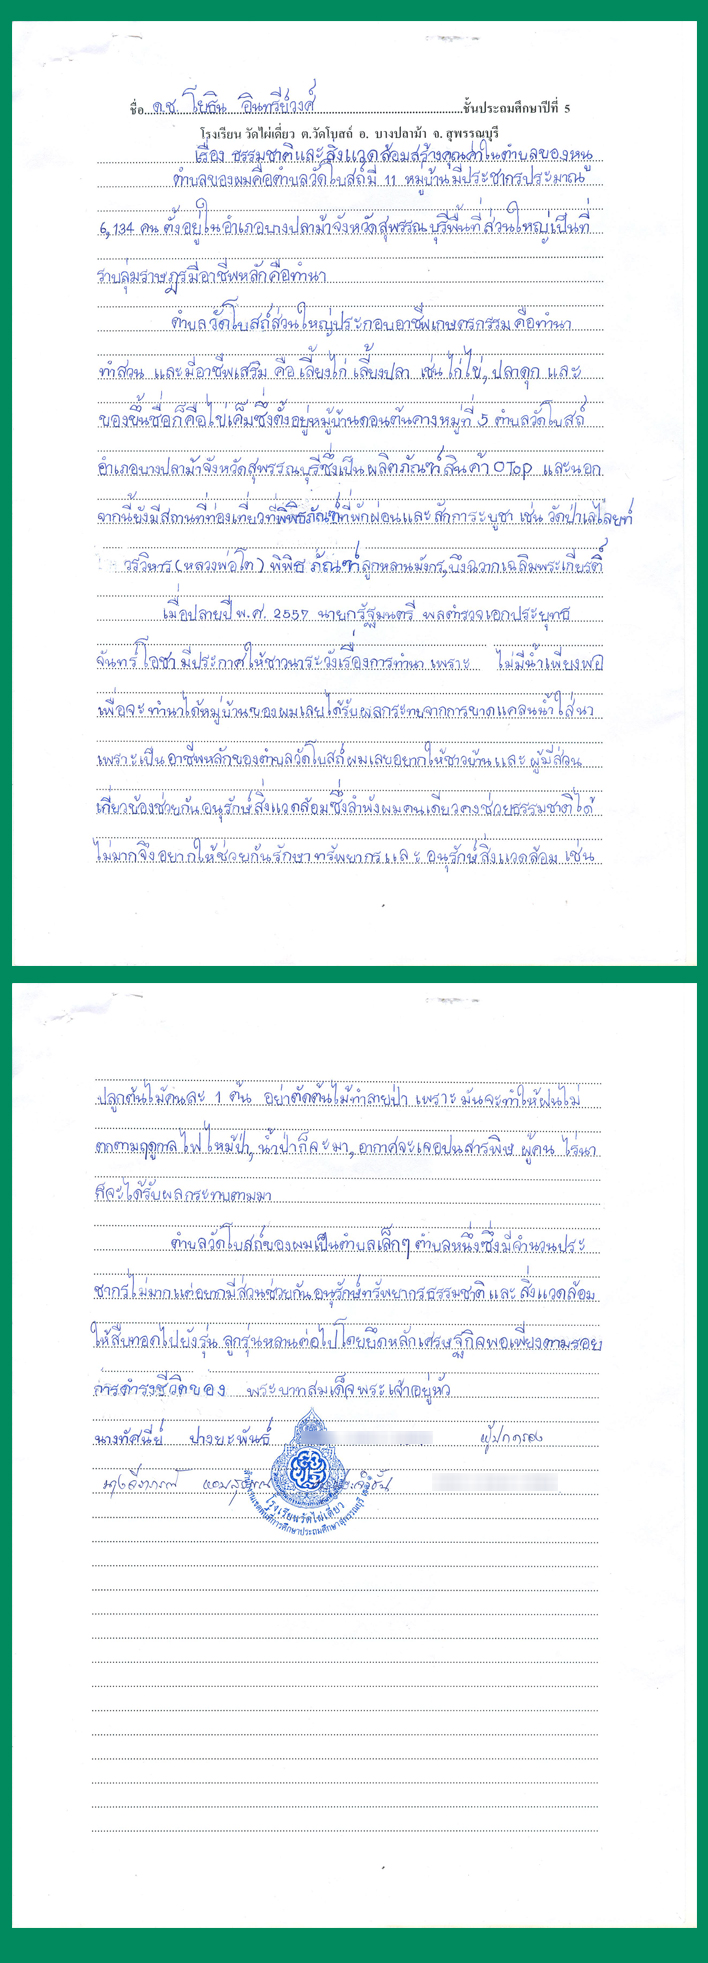 ชื่อ ด.ช. โยธิน อินทรีย์วงศ์ ชั้นประถมศึกษาปีที่ 5
โรงเรียน วัดไผ่เดี่ยว ต.วัดโบสถ์ อ. บางปลาม้า จ. สุพรรณบุรี
เรื่อง ธรรมชาติและสิ่งแวดล้อมสร้างคุณค่าในตำบลของหนู
ตำบลของผมคือตำบลวัดโบสถ์มี 11 หมู่บ้านมีประชากรประมาณ
6,134 คน ตั้งอยู่ในอำเภอบางปลาม้าจังหวัดสุพรรณบุรีพื้นที่ส่วนใหญ่เป็นที่
ราบลุ่มราษฎรมีอาชีพหลักคือทำนา
ตำบลวัดโบสถ์ส่วนใหญ่ประกอบอาชีพเกษตรกรรม คือทำนา
ทำสวน และมีอาชีพเสริม คือ เลี้ยงไก่ เลี้ยงปลา เช่น ไก่ไข่, ปลาดุก และ
ของขึ้นชื่อก็คือไข่เค็มซึ่งตั้งอยู่หมู่บ้านดอนต้นคางหมู่ที่ 5 ตำบลวัดโบสถ์
อำเภอบางปลาม้าจังหวัดสุพรรณบุรีซึ่งเป็นผลิตภัณฑ์สินค้า OTop และนอก
จากนี้ยังมีสถานที่ท่องเที่ยวที่พิพิธภัณฑ์ที่พักผ่อนและสักการะบูชา เช่น วัดป่าเลไลยท์
วรวิหาร (หลวงพ่อโต) พิพิธภัณฑ์ลูกหลานมังกร, บึงฉวากเฉลิมพระเกียรติ์
เมื่อปลายปี พ.ศ. 2557 นายกรัฐมนตรี พลตำรวจเอกประยุทธ
จันทร์โอชา มีประกาศให้ชาวนาระวังเรื่องการทำนา เพราะ ไม่มีน้ำเพียงพอ
เพื่อจะทำนาได้หมู่บ้านของผมเลยได้รับผลกระทบจากการขาดแคลนน้ำใส่นา
เพราะเป็นอาชีพหลักของตำบลวัดโบสถ์ผมเลยอยากให้ชาวบ้านและผู้มีส่วน
เกี่ยวข้องช่วยกันอนุรักษ์สิ่งแวดล้อมซึ่งลำพังผมคนเดียวคงช่วยธรรมชาติได้
ไม่มากจึงอยากให้ช่วยกันรักษาทรัพยากรและ อนุรักษ์สิ่งแวดล้อม เช่น
ปลูกต้นไม้คนละ 1 ต้น อย่าตัดต้นไม้ทำลายป่า เพราะมันจะทำให้ฝนไม่
ตกตามฤดูกาล ไฟไหม้ป่า, น้ำป่าก็จะมา, อากาศจะเจอปนสารพิษ ผู้คน ไร่นา
ก็จะได้รับผลกระทบตามมา
ตำบลวัดโบสถ์ของผมเป็นตำบลเล็กๆ ตำบลหนึ่งซึ่งมีจำนวนประ
ชากรไม่มากแต่อยากมีส่วนช่วยกันอนุรักษ์ทรัพยากรธรรมชาติและสิ่งแวดล้อม
ให้สืบทอดไปยังรุ่นลูกรุ่นหลานต่อไปโดยยึดหลักเศรษฐกิจพอเพียงตามรอย
การดำรงชีวิตของ พระบาทสมเด็จพระเจ้าอยู่หัว
นางทัศนีย์ ปางยะพันธ์ ผู้ปกครอง
โรงเรียนวัดไผ่เดี่ยว